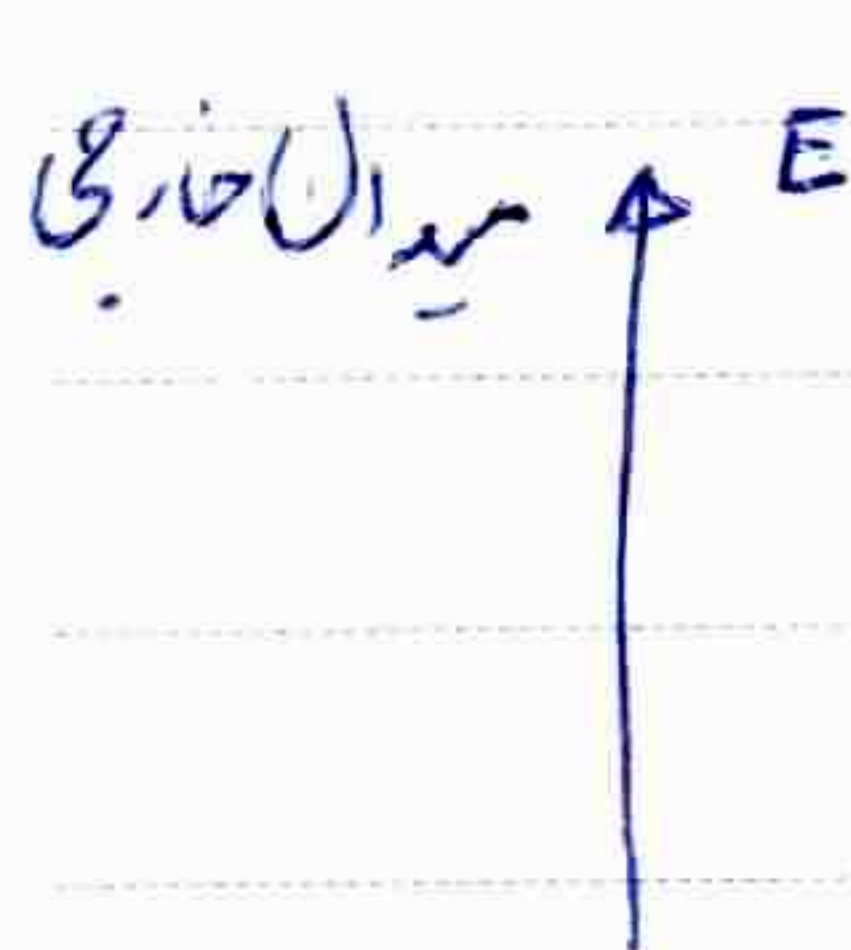 E
میدان خارجی